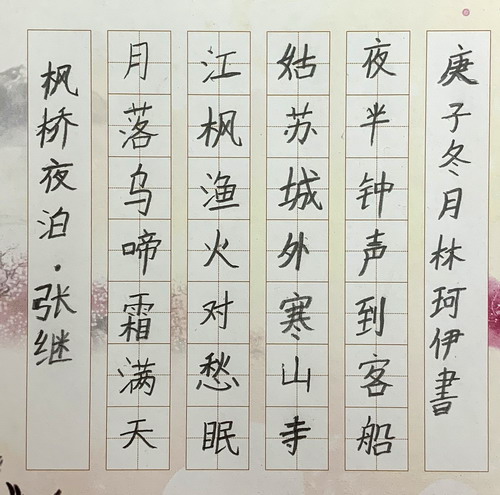 枫桥夜泊·张继
月落乌啼霜满天
江枫渔火对愁眠
姑苏城外寒山寺
夜半钟声到客船
庚子冬月林珂伊書